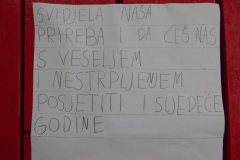 SVIDJELA NAŠA
PRIREBA I DA ĆEŠ NAS
S VESELJEM
I NESTRPLJENJEM
POSJETITI I SLJEDEĆE
GODINE